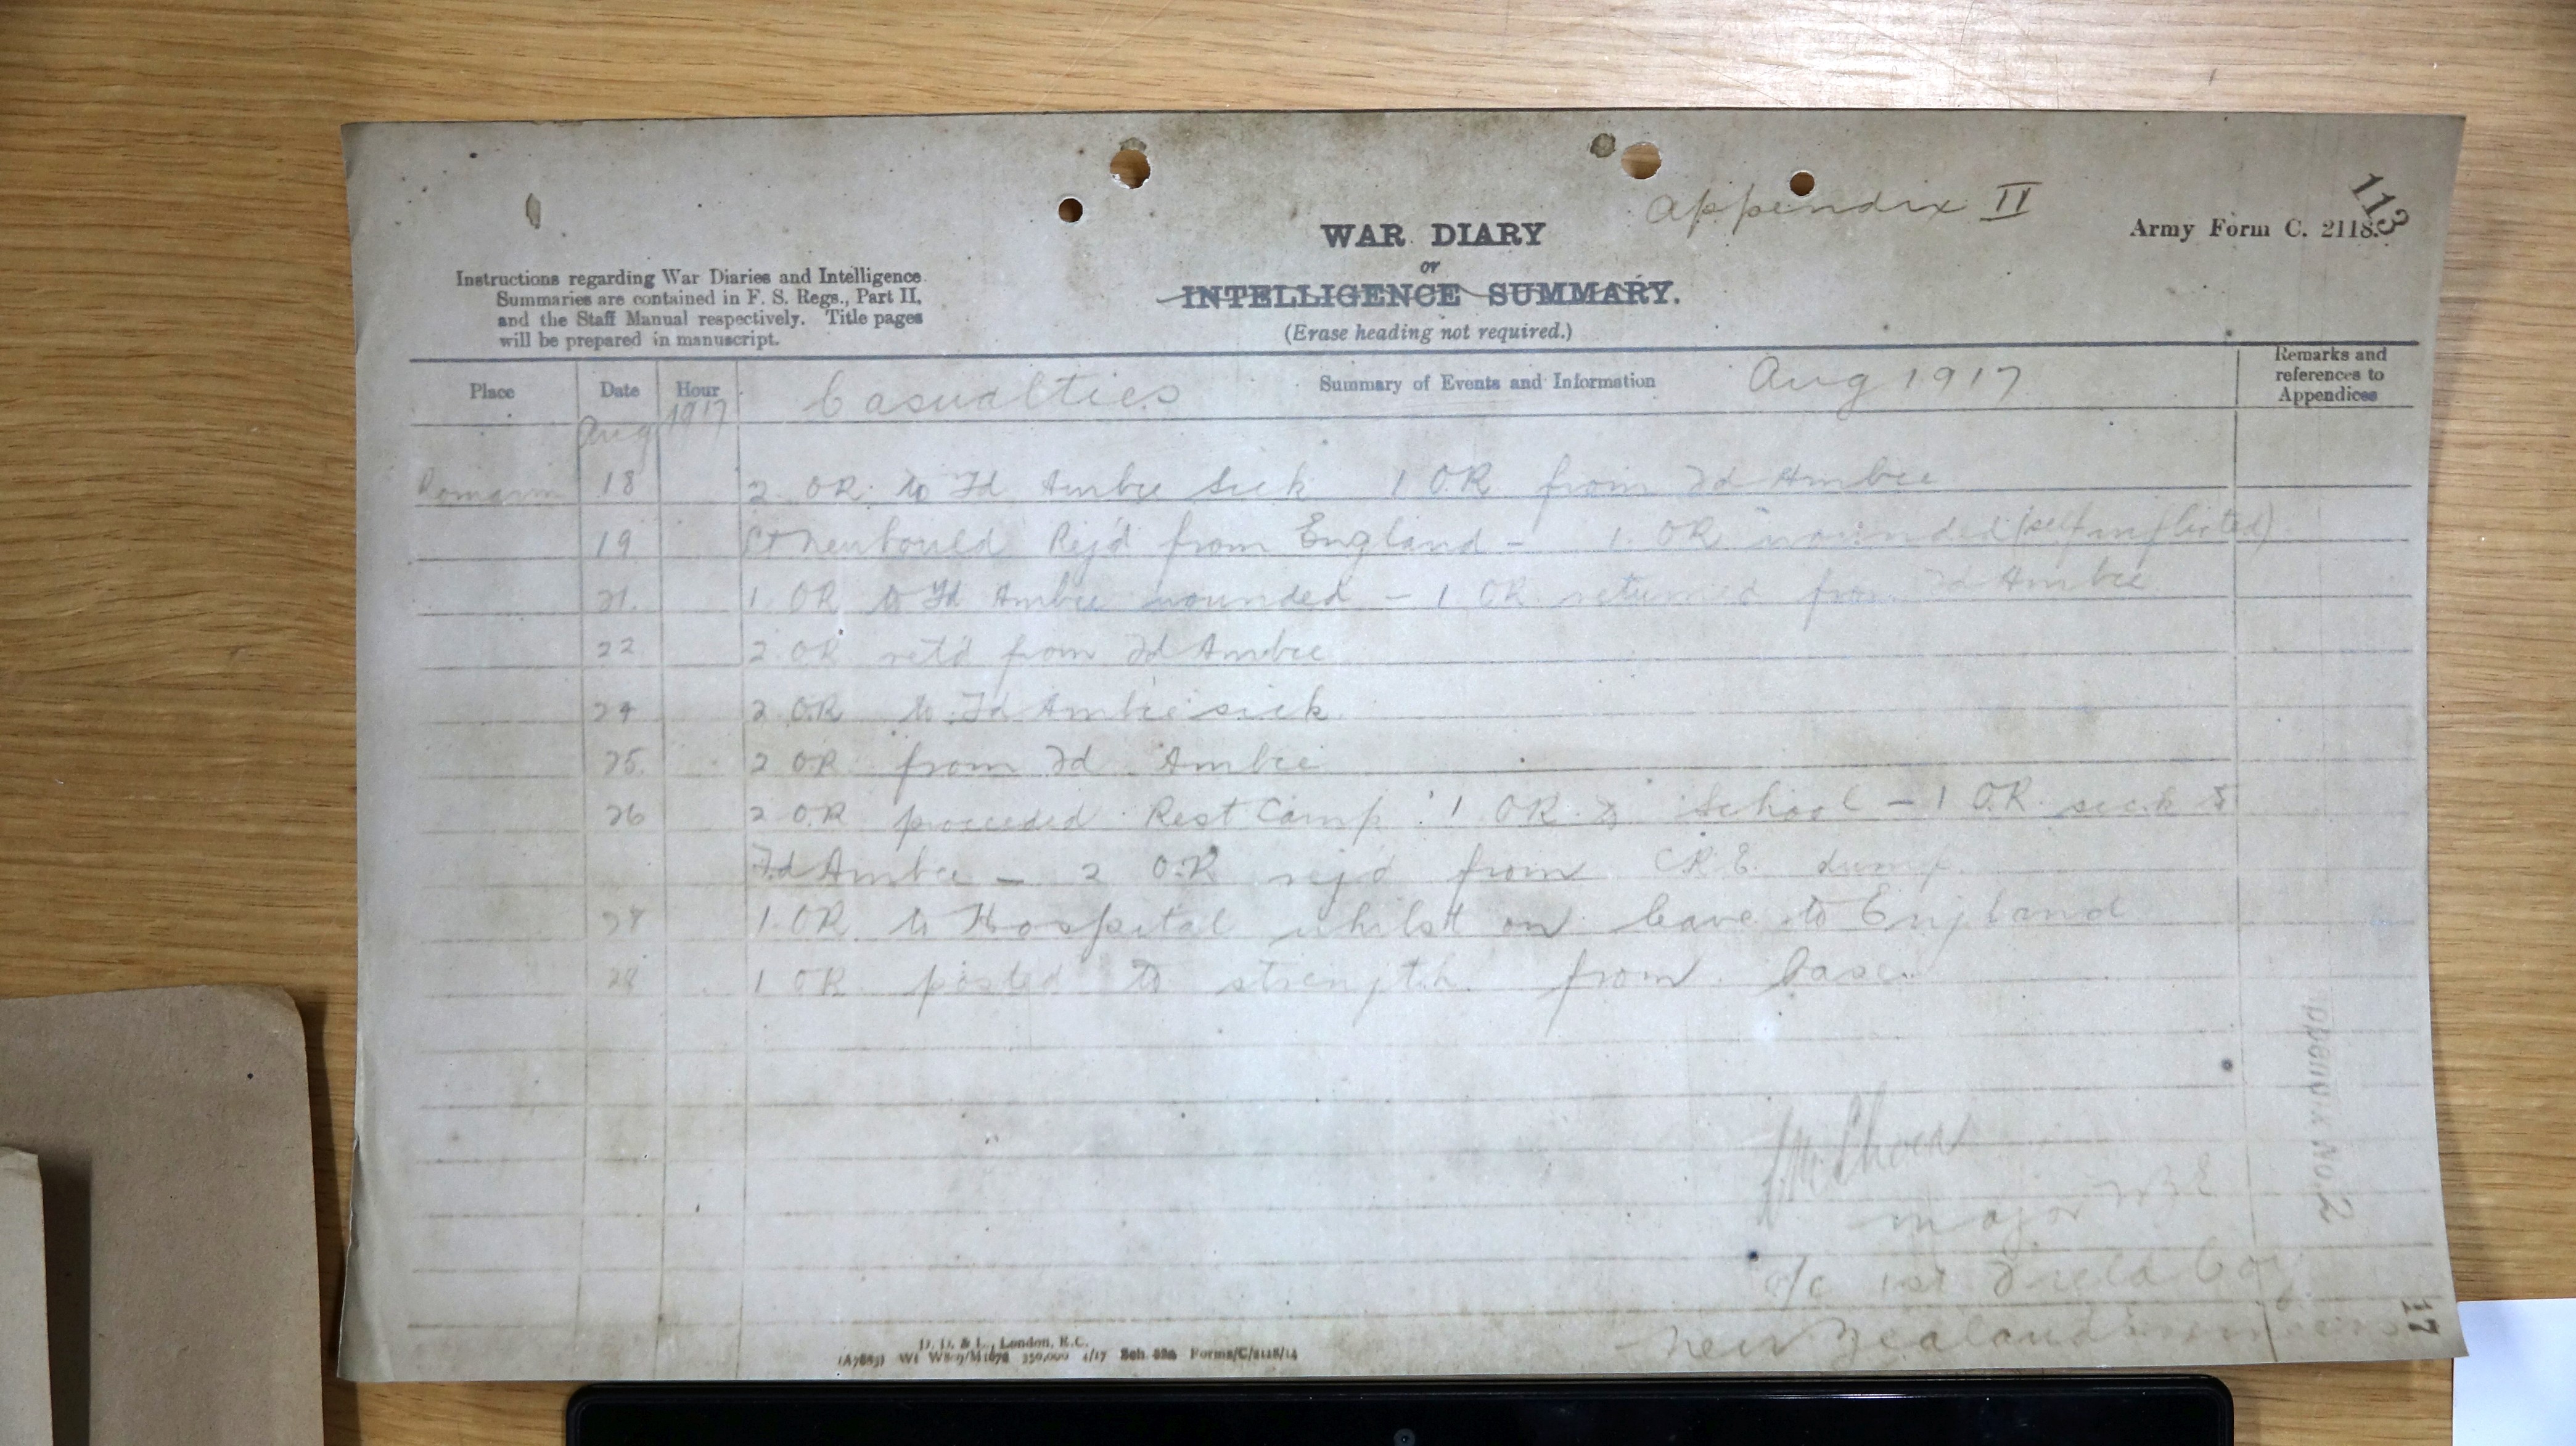 Appendix II
113
WAR DIARY
Army Form C. 2118.
or
INTELLIGENCE SUMMARY.
(Erase heading not required.)
Instructions regarding War Diaries and Intelligence
Summaries are contained in F. S. Regs., Part II,
and the Staff Manual respectively. Title pages
will be prepared in manuscript.
Place Date Hour Casualties Summary of Events and Information Aug 1917 Remarks and
references to
Appendices
Aug 1917
Romarin 18 2 OR to Fd Ambce Sick 1 O.R from Fd Ambce
19 Lt Newbould Rej'd from England - 1. OR wounded (self inflicted)
21. 1. OR to Fd Ambce wounded - 1 OR returned from Fd Ambce
22 2 OR ret'd from Fd Ambce
24 2 O.R to Fd Ambce sick
25. 2 OR from Fd Ambce
26 2 O.R proceeded Rest Camp 1 OR to School - 1 O.R. sick to
Fd Ambce - 2 O.R rej'd from C.R.E. dump.
1. OR to Hospital whilst on leave to England
28 1 OR posted to strength from base.
Major NZE
o/c 1st Field Coy
New Zealand Engineers
Appendix No. 2
17
D. D. & L., London, E.C.
350,000 4/17 Sch. 52a Forms/C/2118/14